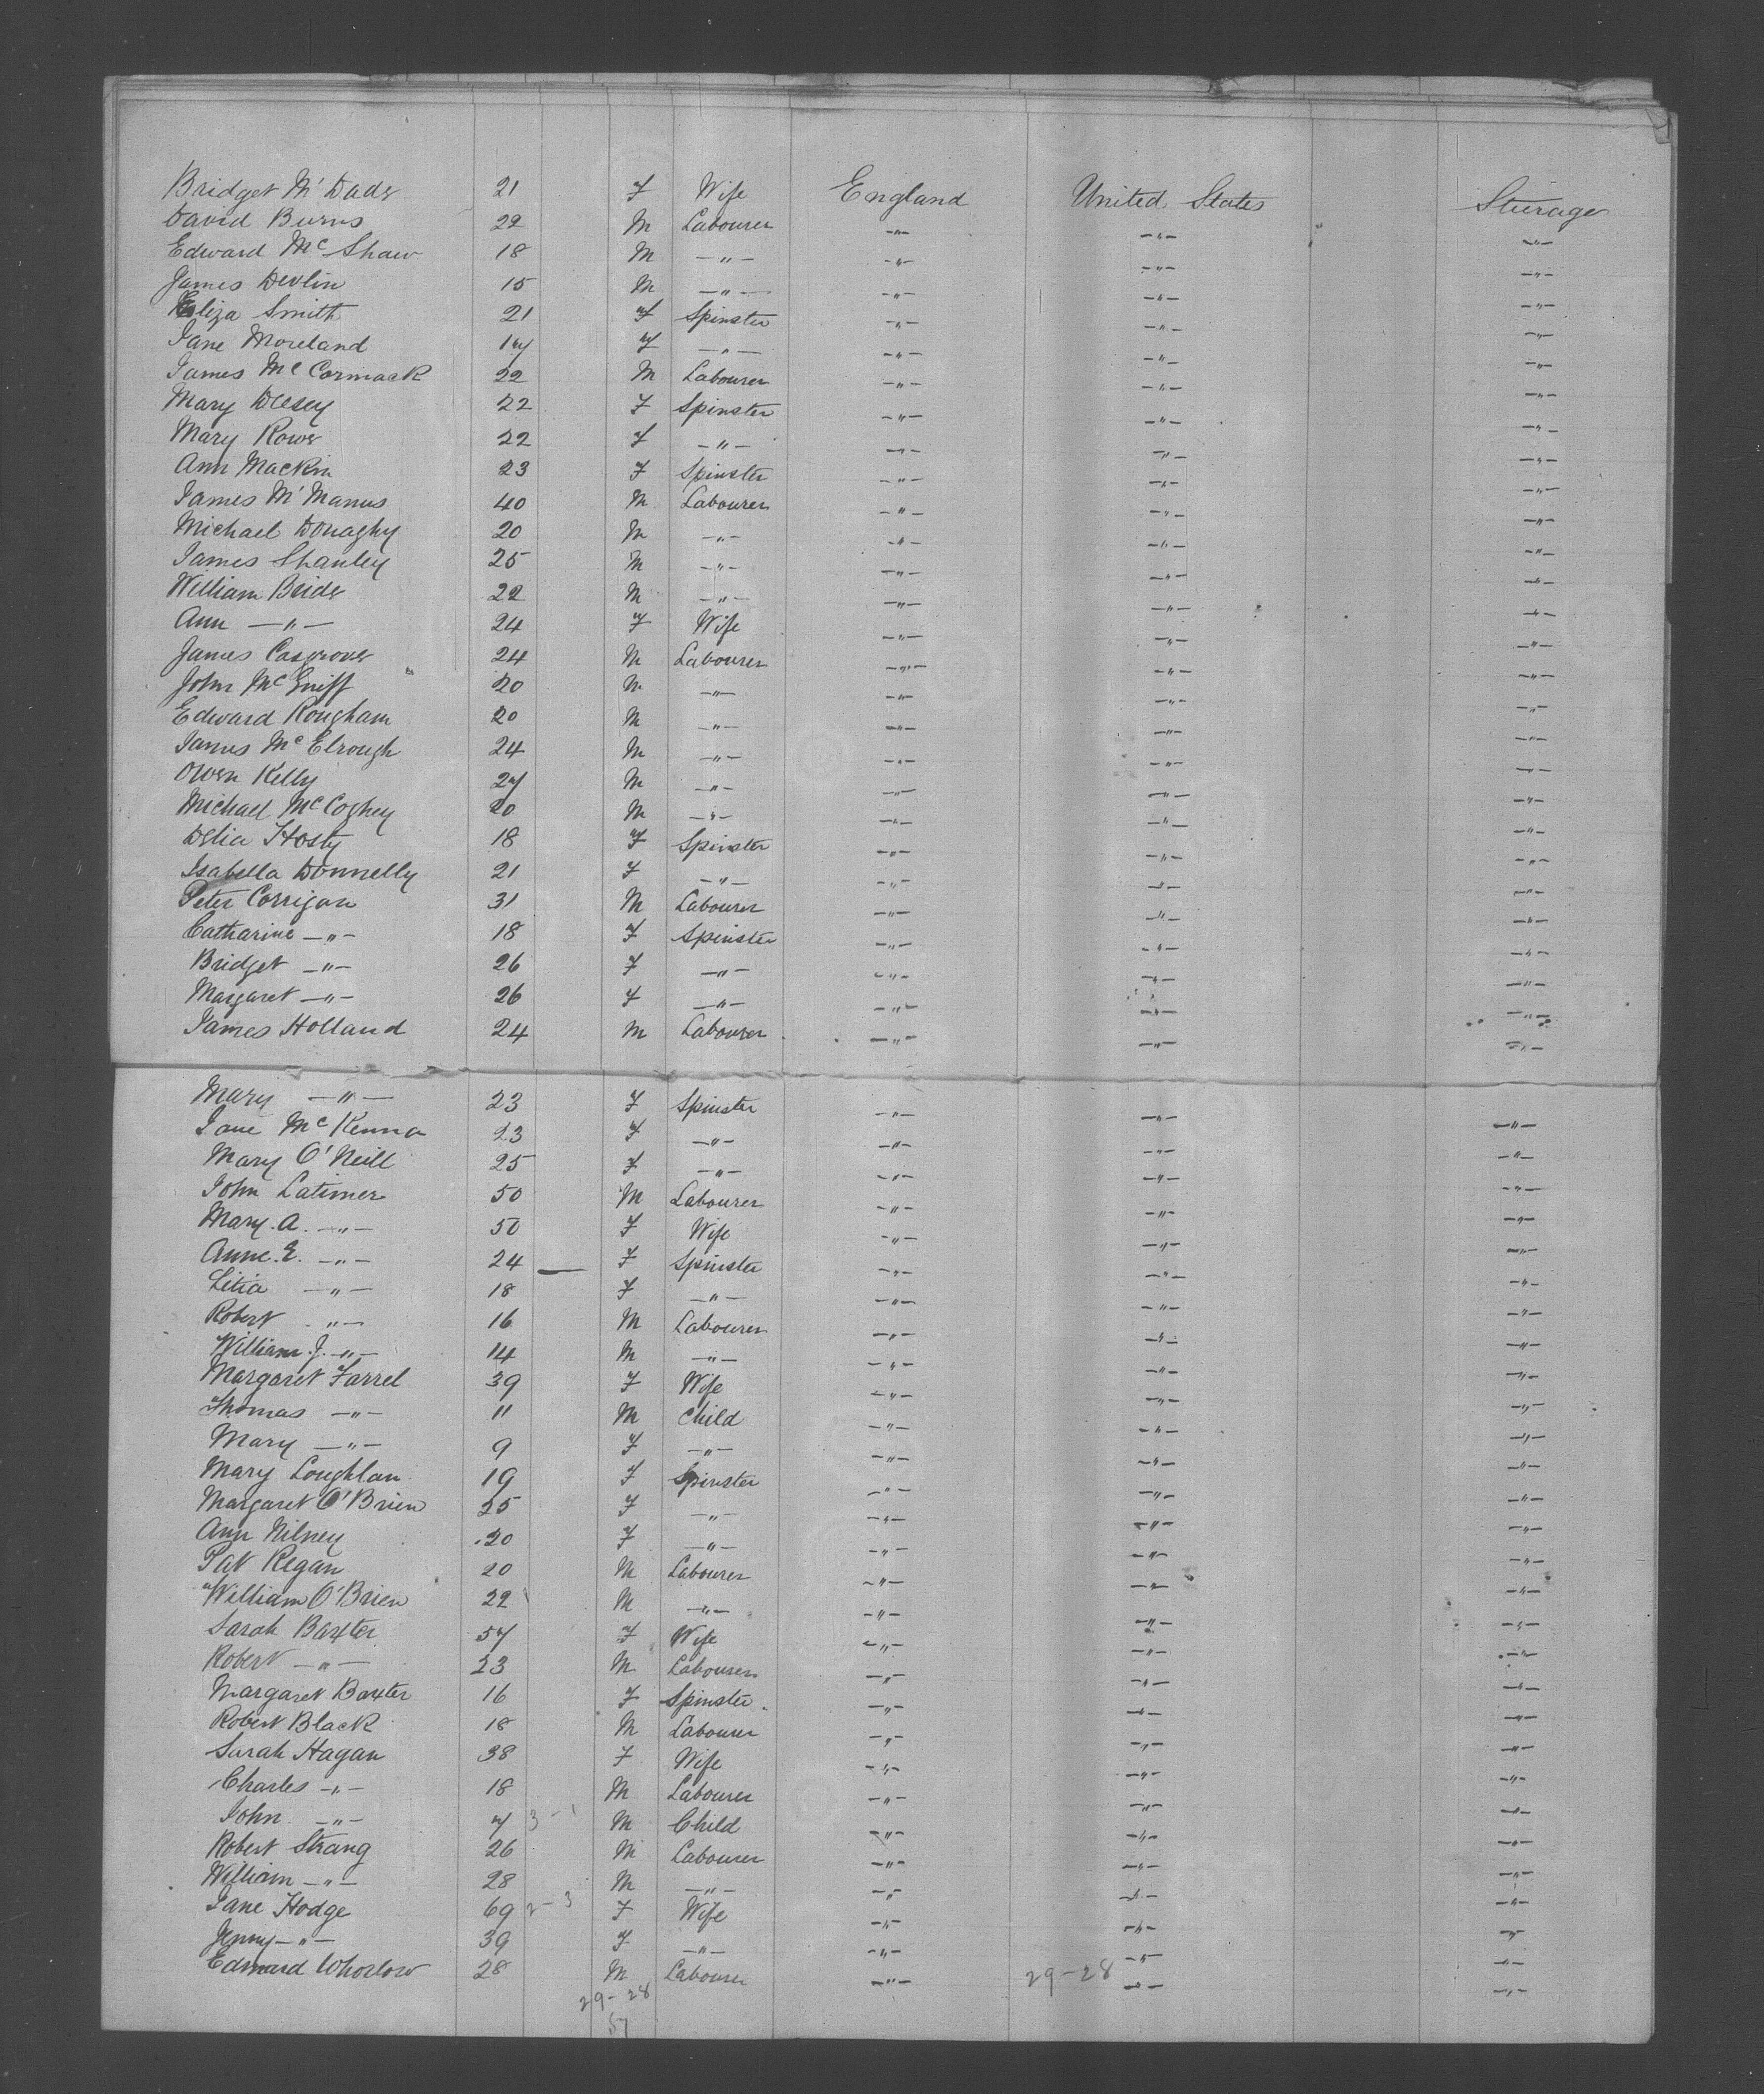 Bridget M' Dade 21 F Wife England United States Steerage
David Burns 22 M Labourer -"- -"- -"-
Edward Mc Shaw 18 M -"- -"- -"- -"-
James Devlin 15 M -"- -"- -"- -"-
Eliza Smith 21 F Spinster -"- -"- -"-
Jane Moreland 17 F -"- -"- -"- -"-
James Mc Cormack 22 M Labourer -"- -"- -"-
Mary Deesey 22 F Spinster -"- -"- -"-
Mary Rowe 22 F -"- -"- -"- -"-
Ann Mackin 23 F Spinster -"- -"- -"-
James M' Manus 40 M Labourer -"- -"- -"-
Michael Donaghy 20 M -"- -"- -"- -"-
James Shanley 25 M -"- -"- -"- -"-
William Beide 22 M -"- -"- -"- -"-
Ann -"- 24 F Wife -"- -"- -"-
James Cosgrove 24 M Labourer -"- -"- -"-
John Mc Griff 20 M -"- -"- -"- -"-
Edward Rougham 20 M -"- -"- -"- -"-
James Mc Elrough 24 M -"- -"- -"- -"-
Owen Kelly 27 M -"- -"- -"- -"-
Michael Mc Coghey 20 M -"- -"- -"- -"-
Delia Hosty 18 F Spinster -"- -"- -"-
Isabella Donnelly 21 F -"- -"- -"- -"-
Peter Corrigan 31 M Labourer -"- -"- -"-
Catharine -"- 18 F Spinster -"- -"- -"-
Bridget -"- 26 F -"- -"- -"- -"-
Margaret -"- 26 F -"- -"- -"- -"-
James Holland 24 M Labourer -"- -"- -"-
Mary -"- 23 F Spinster -"- -"- -"-
Jane Mc Kenna 23 F -"- -"- -"- -"-
Mary O'Neill 25 F -"- -"- -"- -"-
John Latimer 50 M Labourer -"- -"- -"-
Mary. A. -"- 50 F Wife -"- -"- -"-
Anne. E. -"- 24 F Spinster -"- -"- -"-
Litia -"- 18 F -"- -"- -"- -"-
Robert -"- 16 M Labourer -"- -"- -"-
William. J. -"- 14 M -"- -"- -"- -"-
Margaret Farrel 39 F Wife -"- -"- -"-
Thomas -"- 11 M Child -"- -"- -"-
Mary -"- 9 F -"- -"- -"- -"-
Mary Loughlan 19 F Spinster -"- -"- -"-
Margaret O'Brien 25 F -"- -"- -"- -"-
Ann Nilney 20 F -"- -"- -"- -"-
Pat Regan 20 M Labourer -"- -"- -"-
William O'Brien 22 M -"- -"- -"- -"-
Sarah Baxter 57 F Wife -"- -"- -"-
Robert -"- 23 M Labourer -"- -"- -"-
Margaret Baxter 16 F Spinster -"- -"- -"-
Robert Black 18 M Labourer -"- -"- -"-
Sarah Hagan 38 F Wife -"- -"- -"-
Charles -"- 18 M Labourer -"- -"- -"-
John -"- 7 3 - 1 M Child -"- -"- -"-
Robert Strang 26 M Labourer -"- -"- -"-
William -"- 28 M -"- -"- -"- -"-
Jane Hodge 69 2 - 3 F Wife -"- -"- -"-
Jenny -"- 39 F -"- -"- -"- -"-
Edward Whorlow 28 M Labourer -"- 29-28 -"- -"-
29-28
57